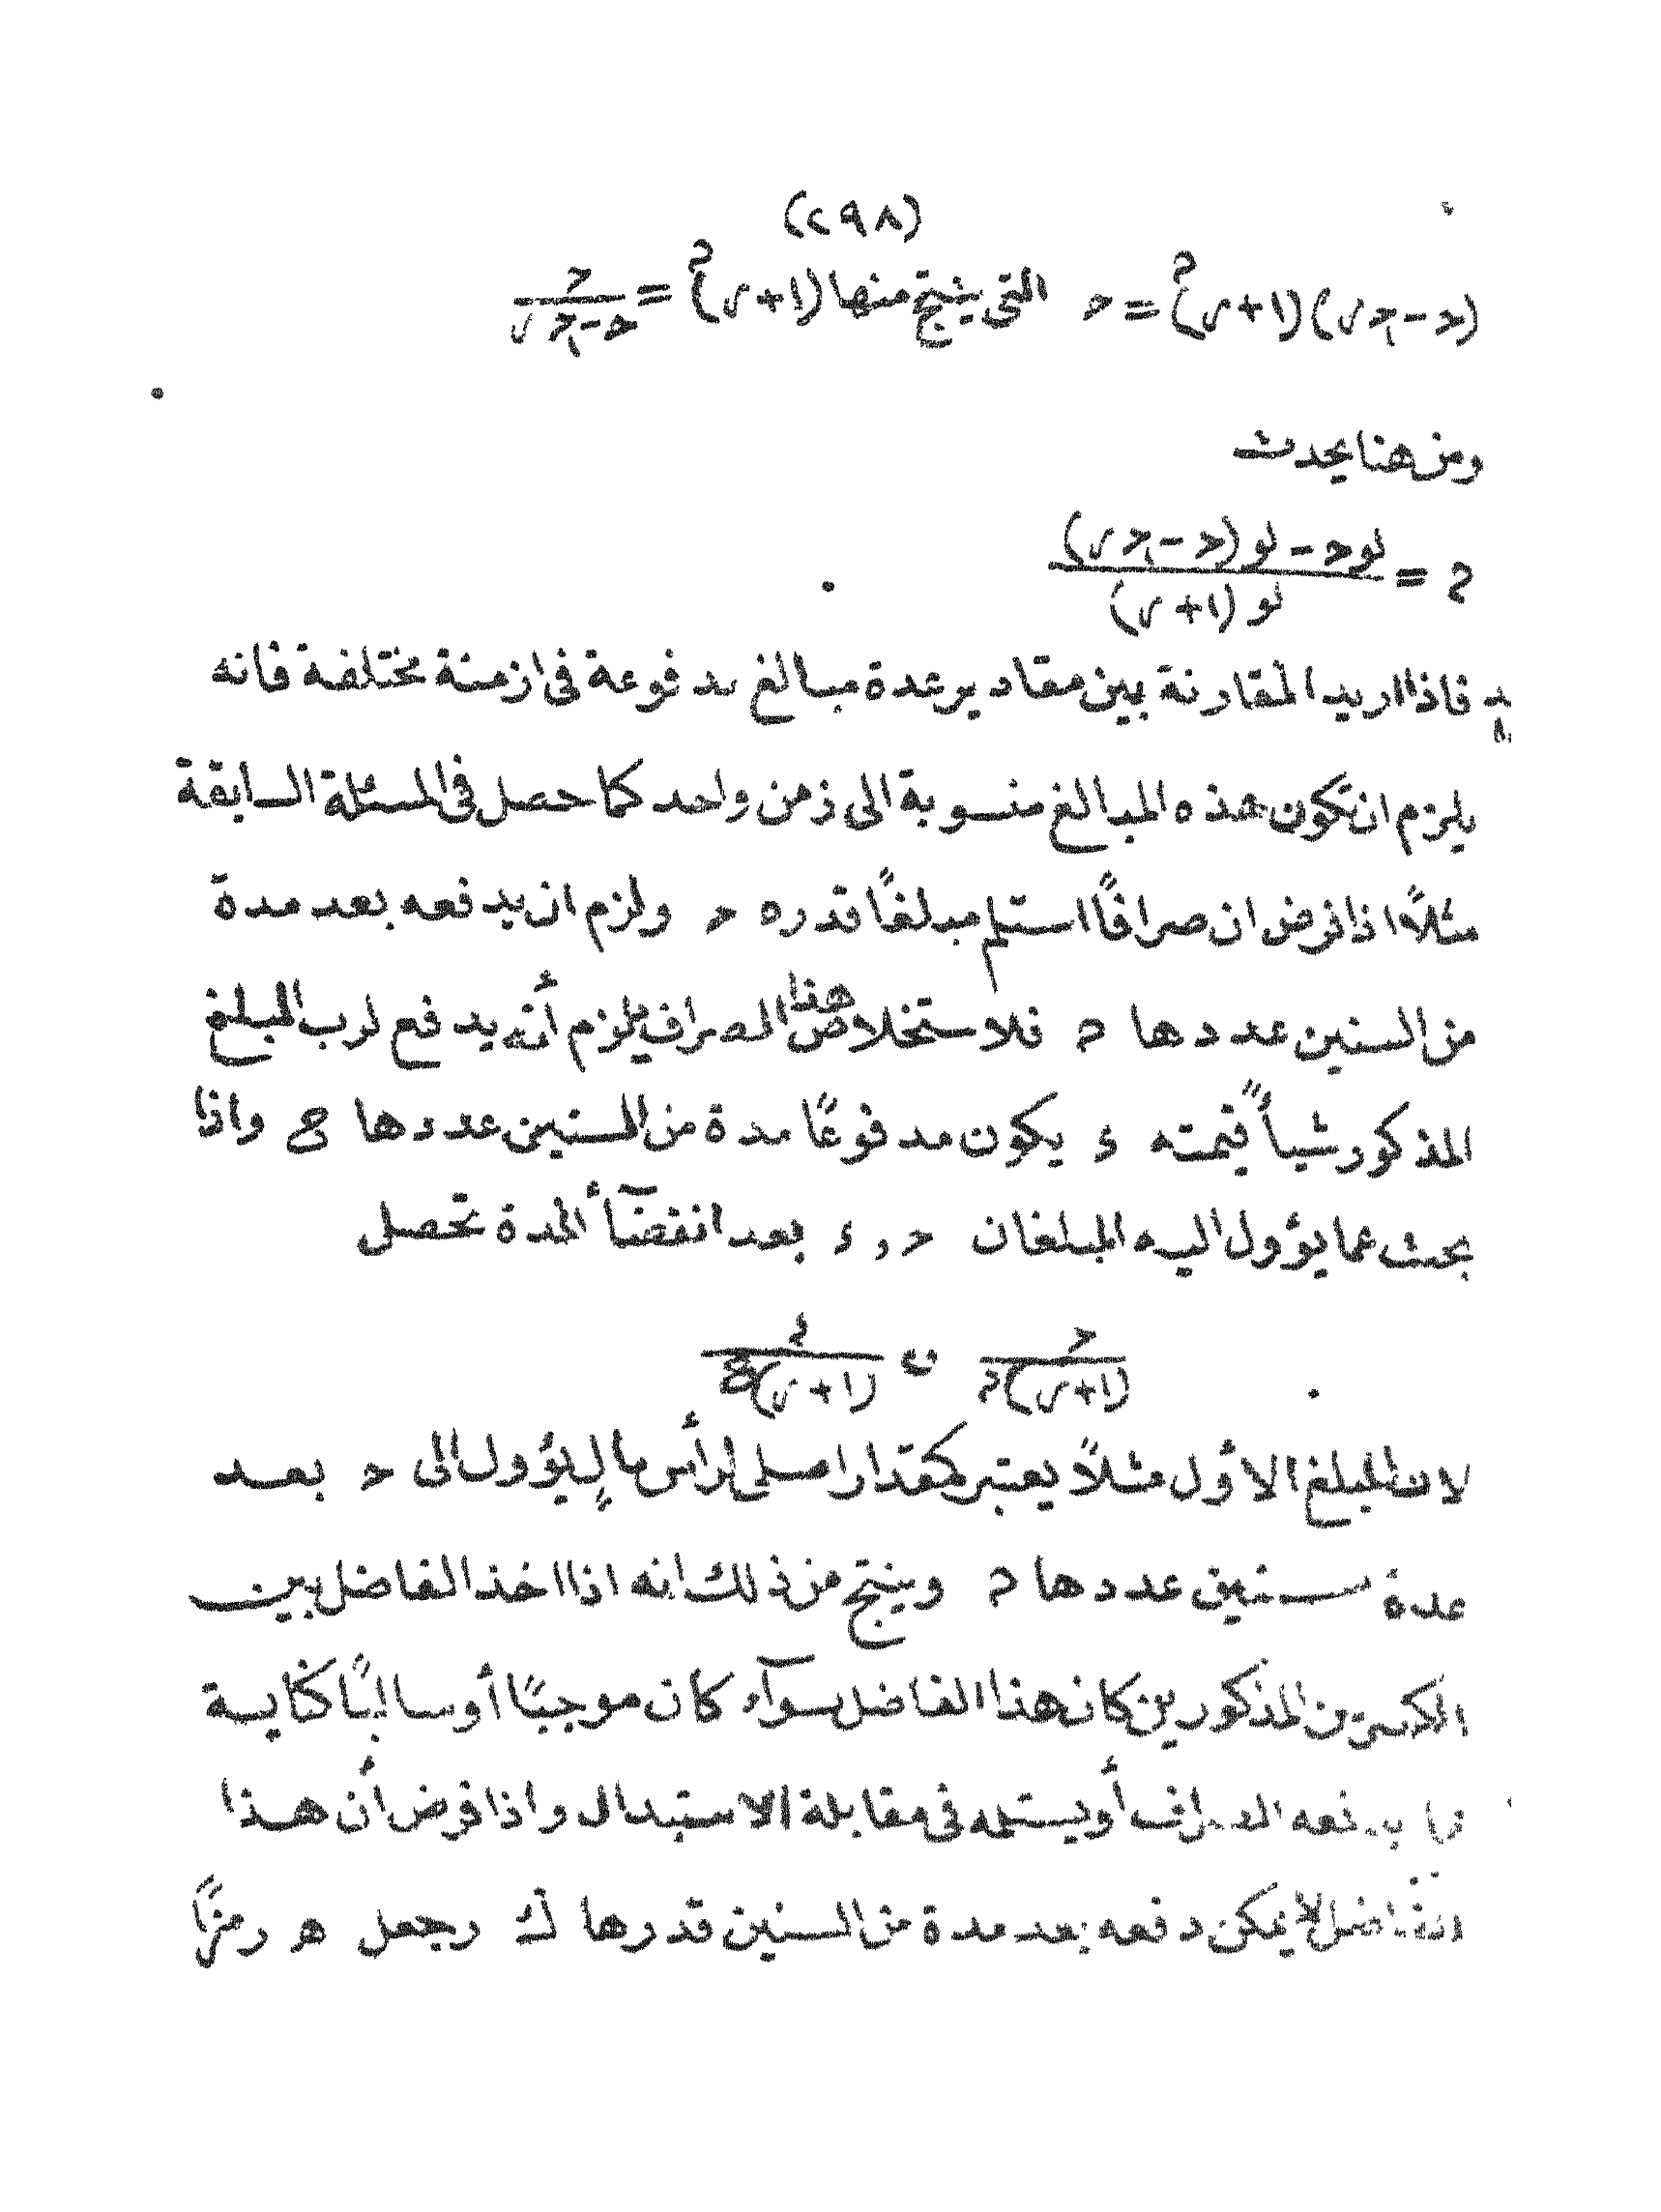 (٢٩٨)
(ح - حـ١ر)(١+ر)^م = ح التى ينتج منها (١+ر)^م = ح / (ح - حـ١ر)
ومن هنا يحدث
م = (لو ح - لو (ح - حـ١ر)) / (لو (١+ر))
فاذا اريد المقارنة بين مقادير عدة مبالغ مدفوعة فى ازمنة مختلفة فانه
يلزم ان تكون هذه المبالغ منسوبة الى زمن واحد كما حصل فى المسئلة السابقة
مثلاً اذا فرض ان صرافًا استلم مبلغًا قدره ح ولزم ان يدفعه بعد مدة
من السنين عددها م فلاستخلاص هذا الصراف يلزم أنه يدفع لرب المبلغ
المذكور شيأً قيمته ء يكون مدفوعًا مدة من السنين عددها ج واذا
بحث عما يؤول اليه المبلغان ح , ء بعد انقضآ ألمدة تحصل
ح / (١+ر)^م و ء / (١+ر)^ج
لان المبلغ الأول مثلاً يعتبر كمقدار اصلى لرأس مالٍ يؤول الى ح بعد
عدة سنين عددها م وينتج من ذلك انه اذا اخذ الفاضل بين
الكسرين المذكورين كان هذا الفاضل سوآء كان موجبًا أو سالبًا كناية
عما يدفعه الصراف أو يستلمه فى مقابلة الاستبدال واذا فرض أن هذا
الفاضل لا يمكن دفعه بعد مدة من السنين قدرها ك وجعل ه رمزًا